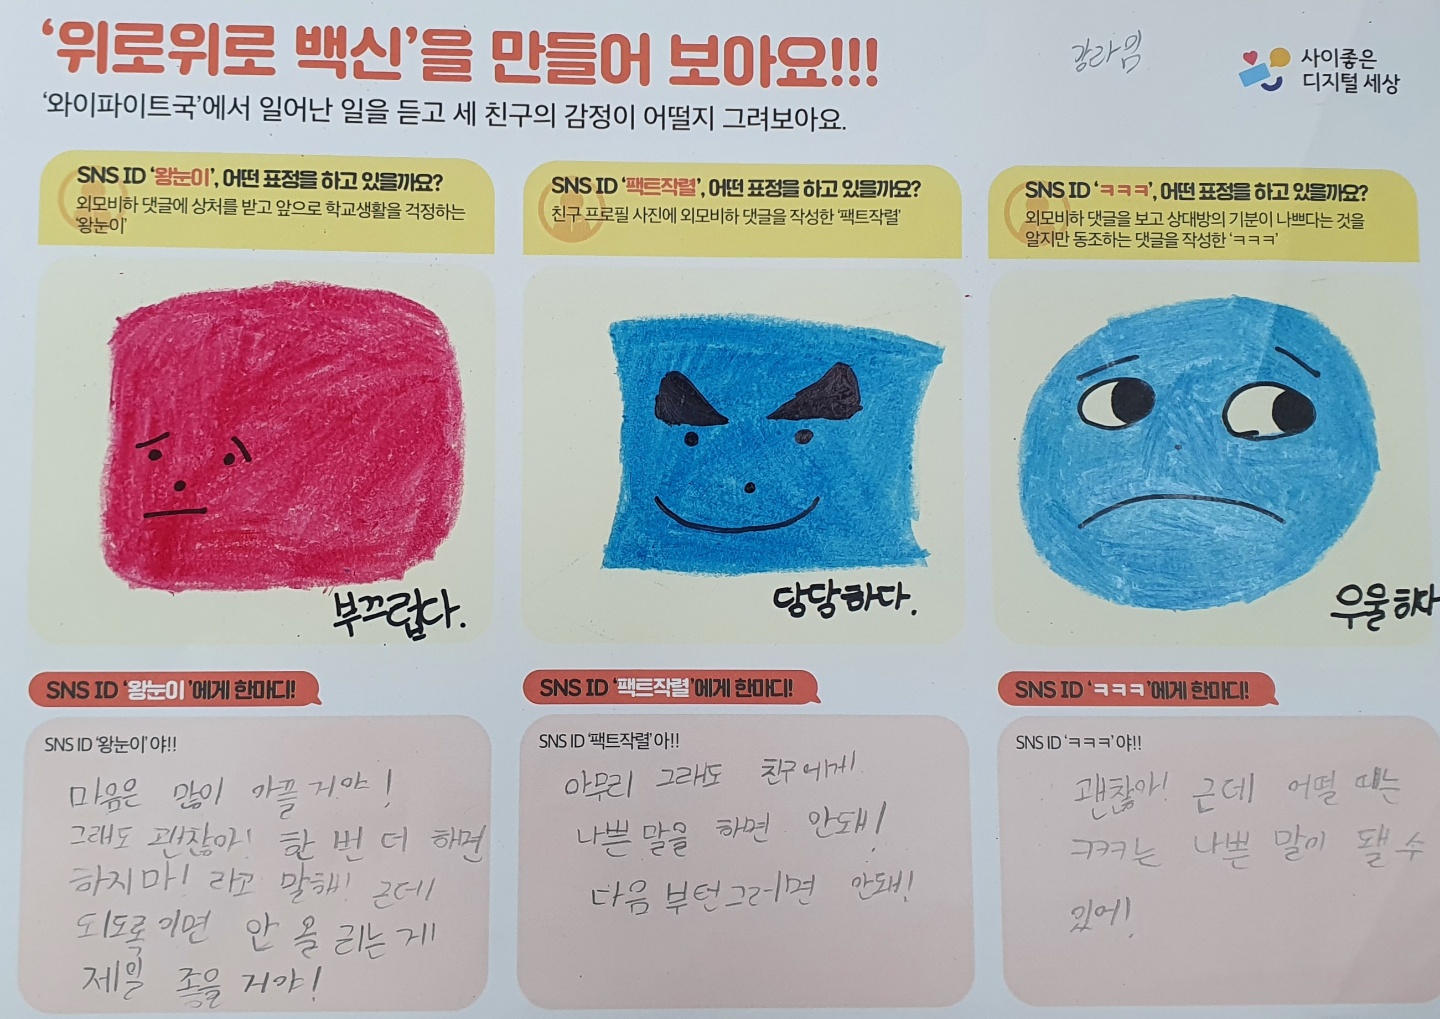 '위로위로 백신'을 만들어 보아요!!!
강라임
사이좋은
디지털 세상
'와이파이트국'에서 일어난 일을 듣고 세 친구의 감정이 어떨지 그려보아요.
SNS ID '왕눈이', 어떤 표정을 하고 있을까요?
외모비하 댓글에 상처를 받고 앞으로 학교생활을 걱정하는
'왕눈이'
부끄럽다.
SNS ID '팩트작렬', 어떤 표정을 하고 있을까요?
친구 프로필 사진에 외모비하 댓글을 작성한 '팩트작렬'
당당하다.
SNS ID 'ㅋㅋㅋ', 어떤 표정을 하고 있을까요?
외모비하 댓글을 보고 상대방의 기분이 나쁘다는 것을
알지만 동조하는 댓글을 작성한 'ㅋㅋㅋ'
우울하다
SNS ID '왕눈이'에게 한마디!
SNS ID '왕눈이'야!!
마음은 많이 아플거야!
그래도 괜찮아! 한 번 더 하면
하지마! 라고 말해! 근데
되도록이면 안 올리는게
제일 좋을 거야!
SNS ID '팩트작렬'에게 한마디!
SNS ID '팩트작렬'아!!
아무리 그래도 친구에게
나쁜 말을 하면 안돼!
다음부턴 그러면 안돼!
SNS ID 'ㅋㅋㅋ'에게 한마디!
SNS ID 'ㅋㅋㅋ'야!!
괜찮아! 근데 어떨 때는
ㅋㅋㅋ는 나쁜 말이 됄 수
있어!